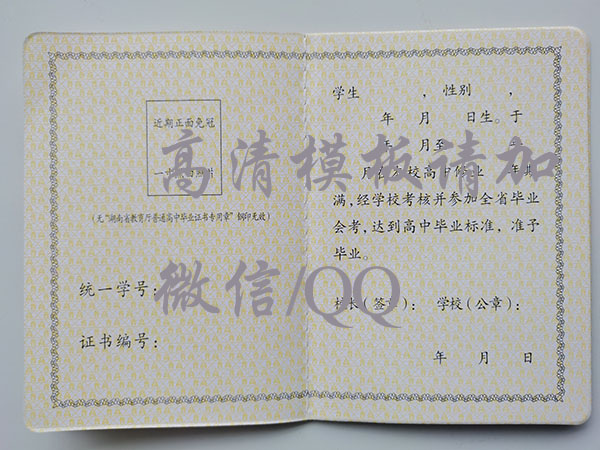 近期正面免冠
一寸 照片
(无“湖南省教育厅普通高中毕业证书专用章”钢印无效)
统一学号:
证书编号:
学生 , 性别 ,
年 月 日生。于
年 月至 年
月在 校高中修业 年期
满,经学校考核并参加全省毕业
会考,达到高中毕业标准,准予
毕业。
校长(签章): 学校(公章):
年 月 日
高清模板请加
微信/QQ